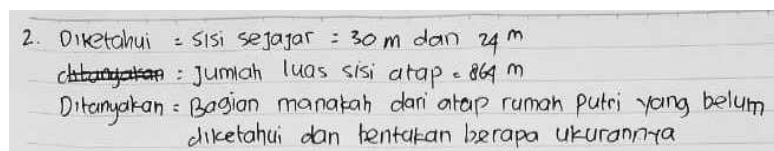 2. Diketahui = sisi sejajar = 30 m dan 24 m
: Jumlah luas sisi atap = 864 m
Ditanyakan = Bagian manakah dari atap rumah Putri yang belum
diketahui dan tentukan berapa ukurannya